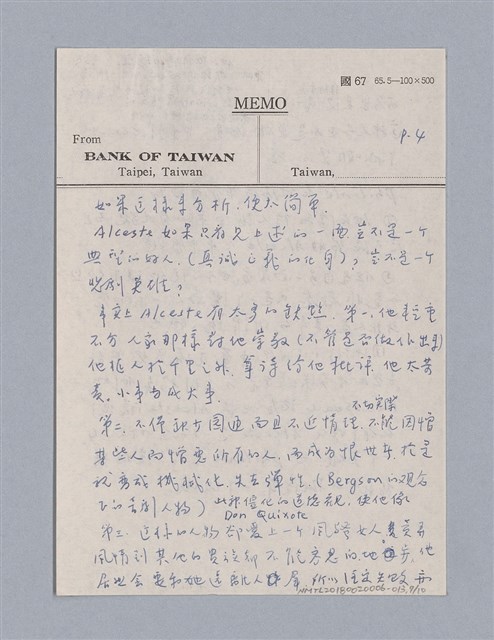 國 67 65.5—100×500
MEMO
From
BANK OF TAIWAN
Taipei, Taiwan
Taiwan,
P.4
如果這樣來分析,便太簡單.
Alceste 如果只有見上述的一面,豈不是一个
典型的好人,(真誠正義的化身)?豈不是一个
悲劇英雄?
事實上 Alceste 有太多的缺點. 第一,他
不分人家那樣對他崇敬(不管是否做作出來)
他拒人於千里之外. 拿詩給他批評,他太苛
責. 小事當成大事.
第二,不僅 圓通而且不近情理,不切實際 不能因憎
某些人而憎惡所有的人,而成為恨世者,於是
就變成機械化,失去彈性.(Bergson的觀念
下的喜劇人物) 此
使他像 Don Quixote
第三.這樣的人物却愛上一个風騷女人,賣弄
風情到其他的貴族都不能 的地步,他
居然會要和她遠離人群,所以
NMTL20180020006-013,9/10